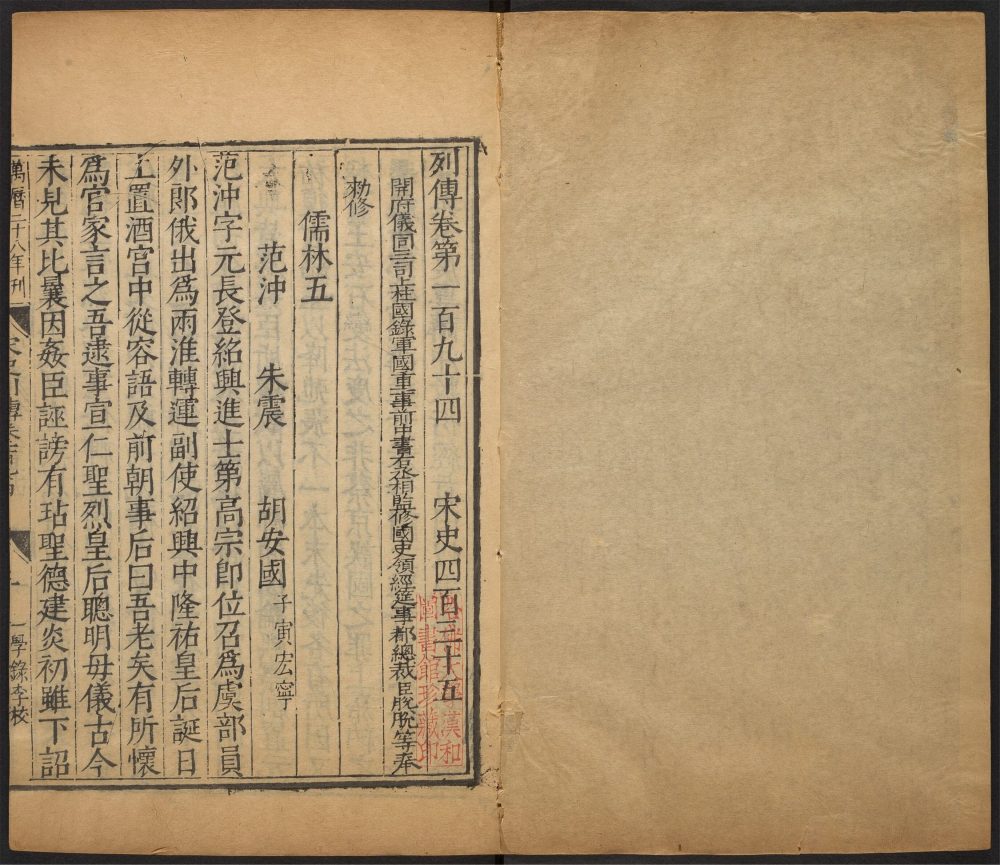 列傳卷第一百九十四 宋史四百三十五
開府儀同三司上柱國錄軍國重事前中書右丞相監修國史領經筵事都總裁臣脫脫等奉
勑修
儒林五
范沖 朱震 胡安國 子寅宏寧
范沖字元長登紹興進士第高宗卽位召爲虞部員
外郎俄出爲兩淮轉運副使紹興中隆祐皇后誕日
上置酒宮中從容語及前朝事后曰吾老矣有所懷
爲官家言之吾逮事宣仁聖烈皇后聰明母儀古今
未見其比曩因姦臣誣謗有玷聖德建炎初雖下詔
萬曆二十八年刊
學錄李校
圖書館珍藏印